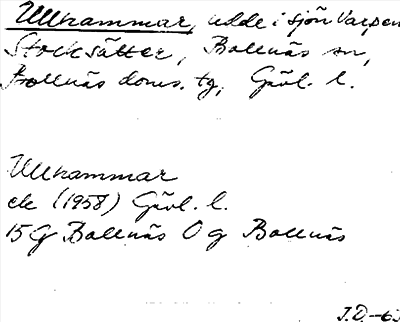 Ullhammar, udde i sjön Varpen
Stocksätter, Bollnäs sn,
Bollnäs doms. tg, Gävl. l.
Ullhammar
ek (1958) Gävl. l.
15 G Bollnäs O g Bollnäs
J.D.-63